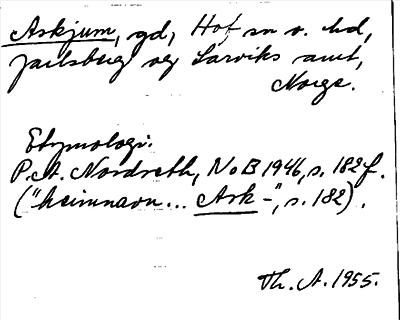 Askjum, gd, Hof sn o. hd,
Jarlsberg og Larviks amt,
Norge.
Etymologi:
P. A. Nordseth, NoB 1946, s. 182 f.
("heimnavn... Ask-", s. 182).
Th. A. 1955.